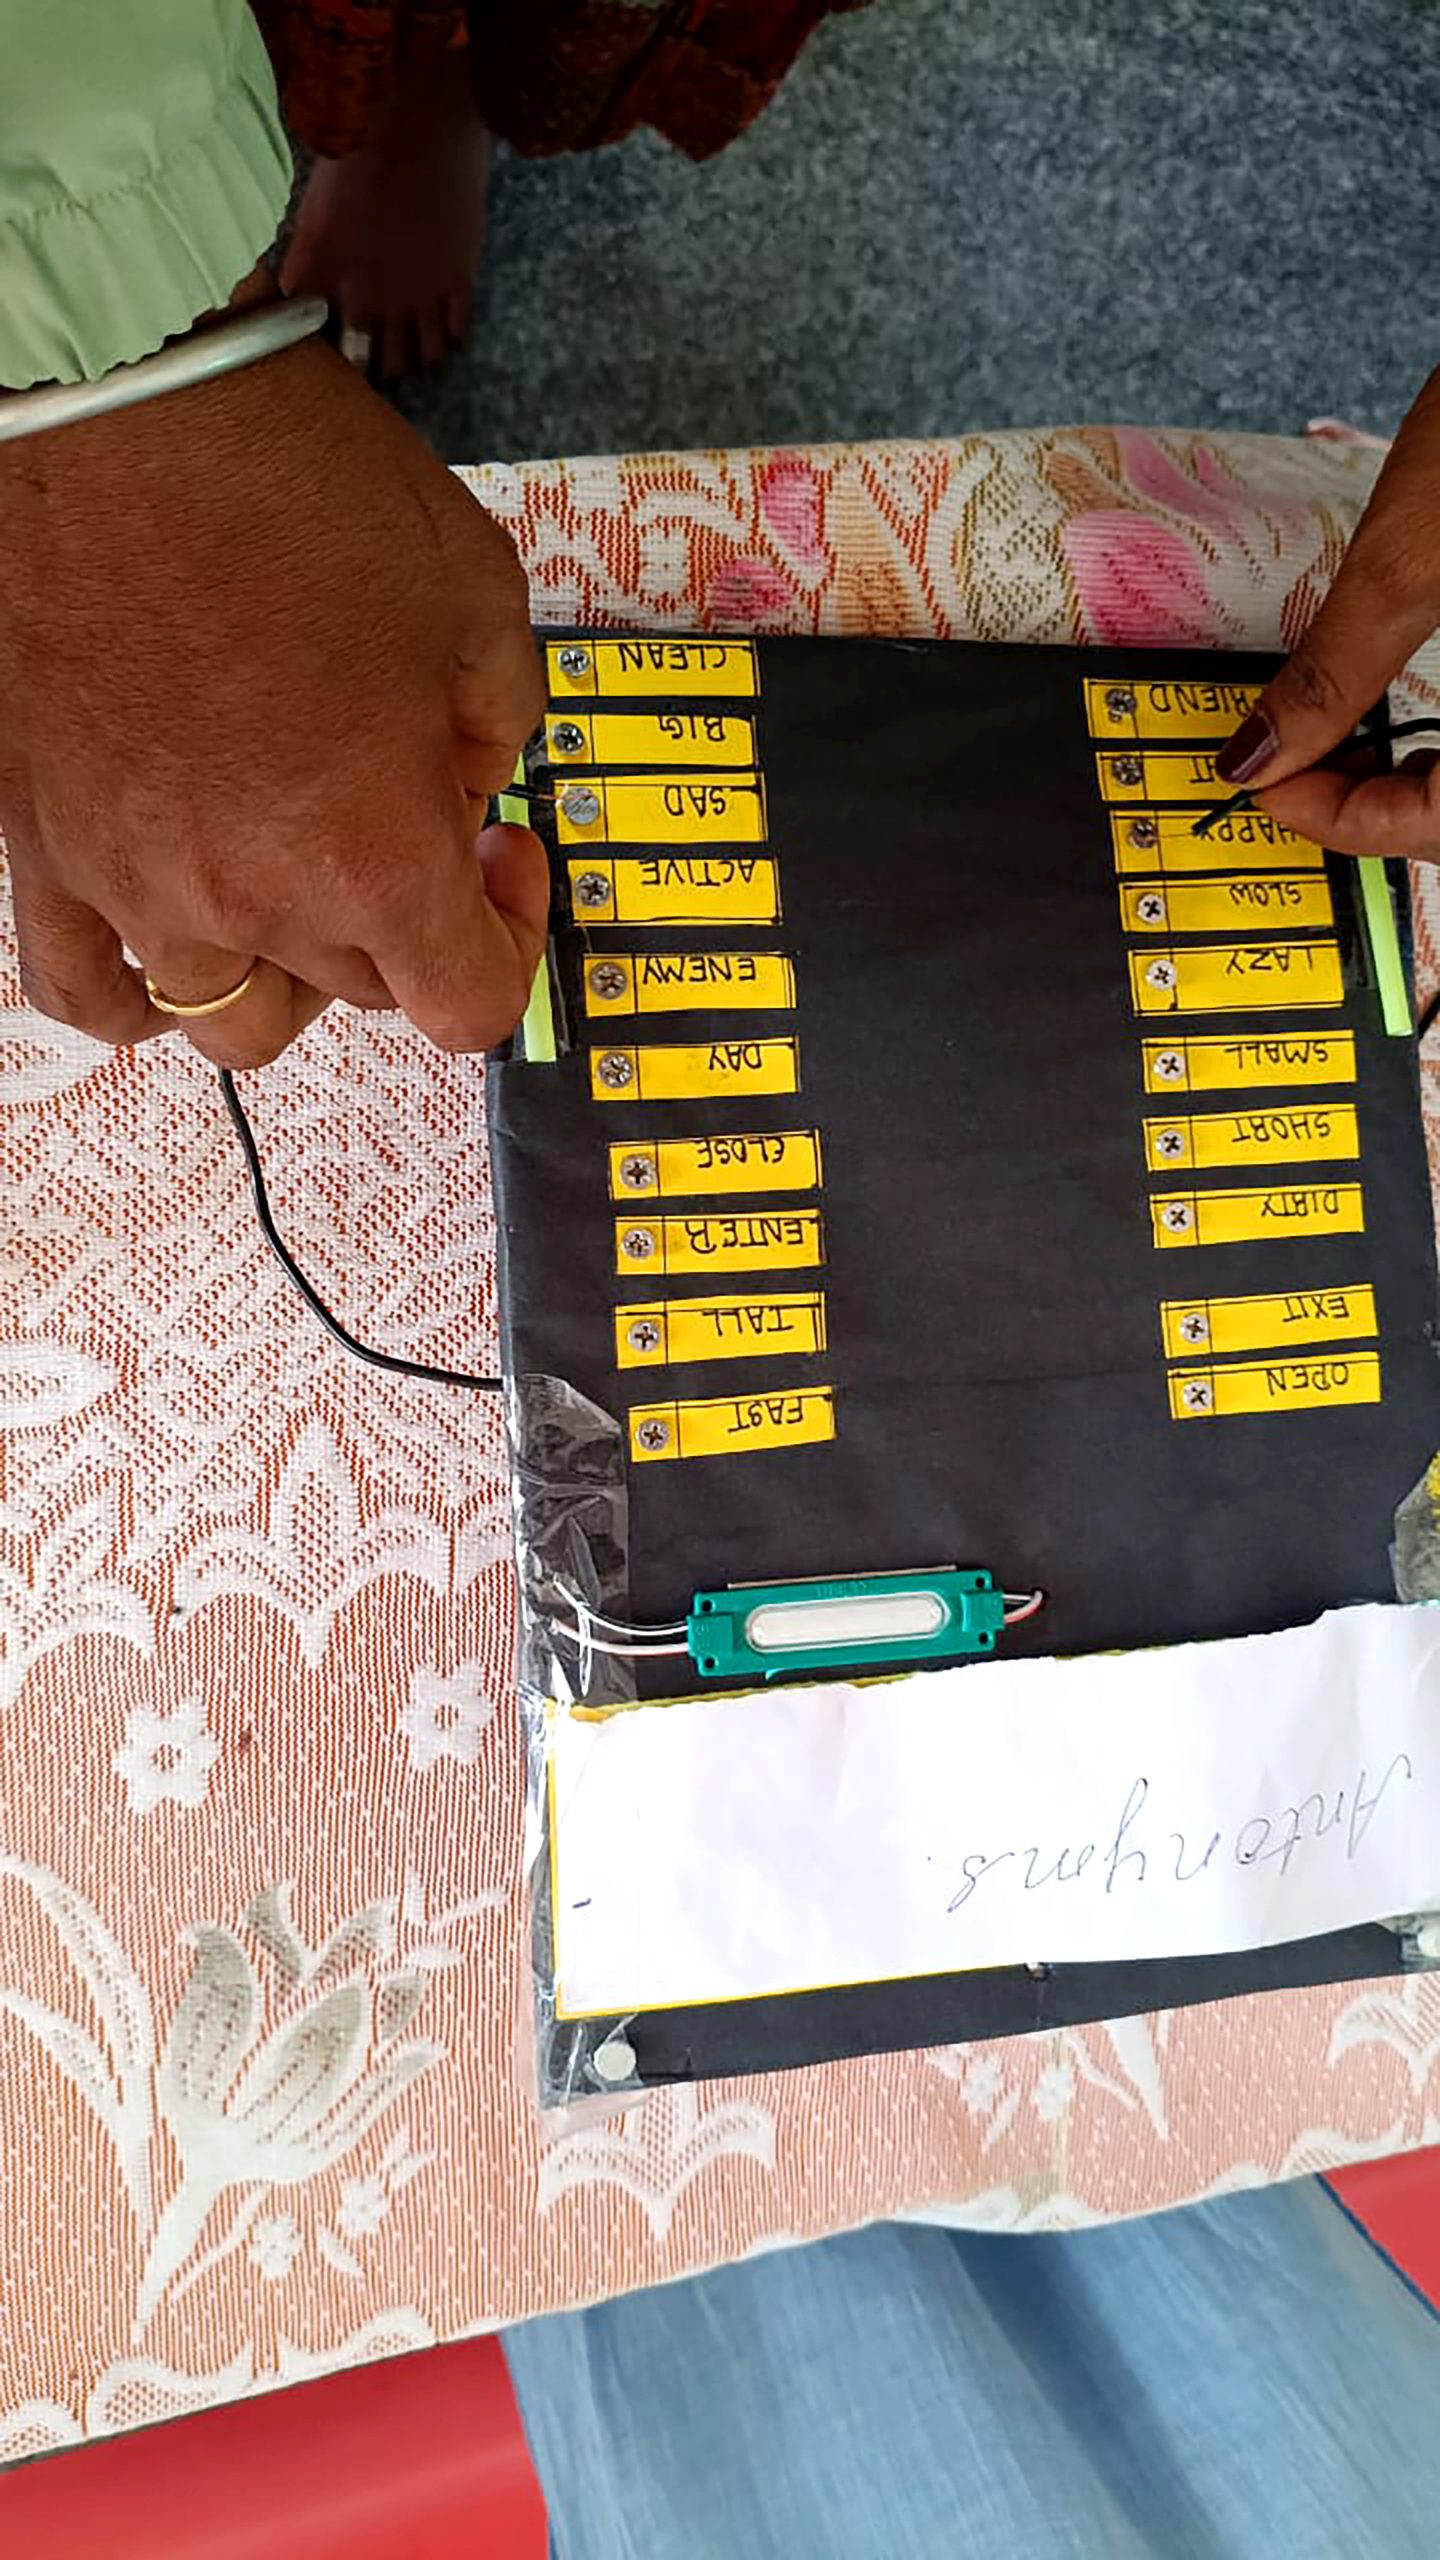 Antonyms.
OPEN
EXIT
DIRTY
SHORT
SMALL
LAZY
SLOW
HAPPY
FRIEND
FAST
TALL
ENTER
CLOSE
DAY
ENEMY
ACTIVE
SAD
BIG
CLEAN